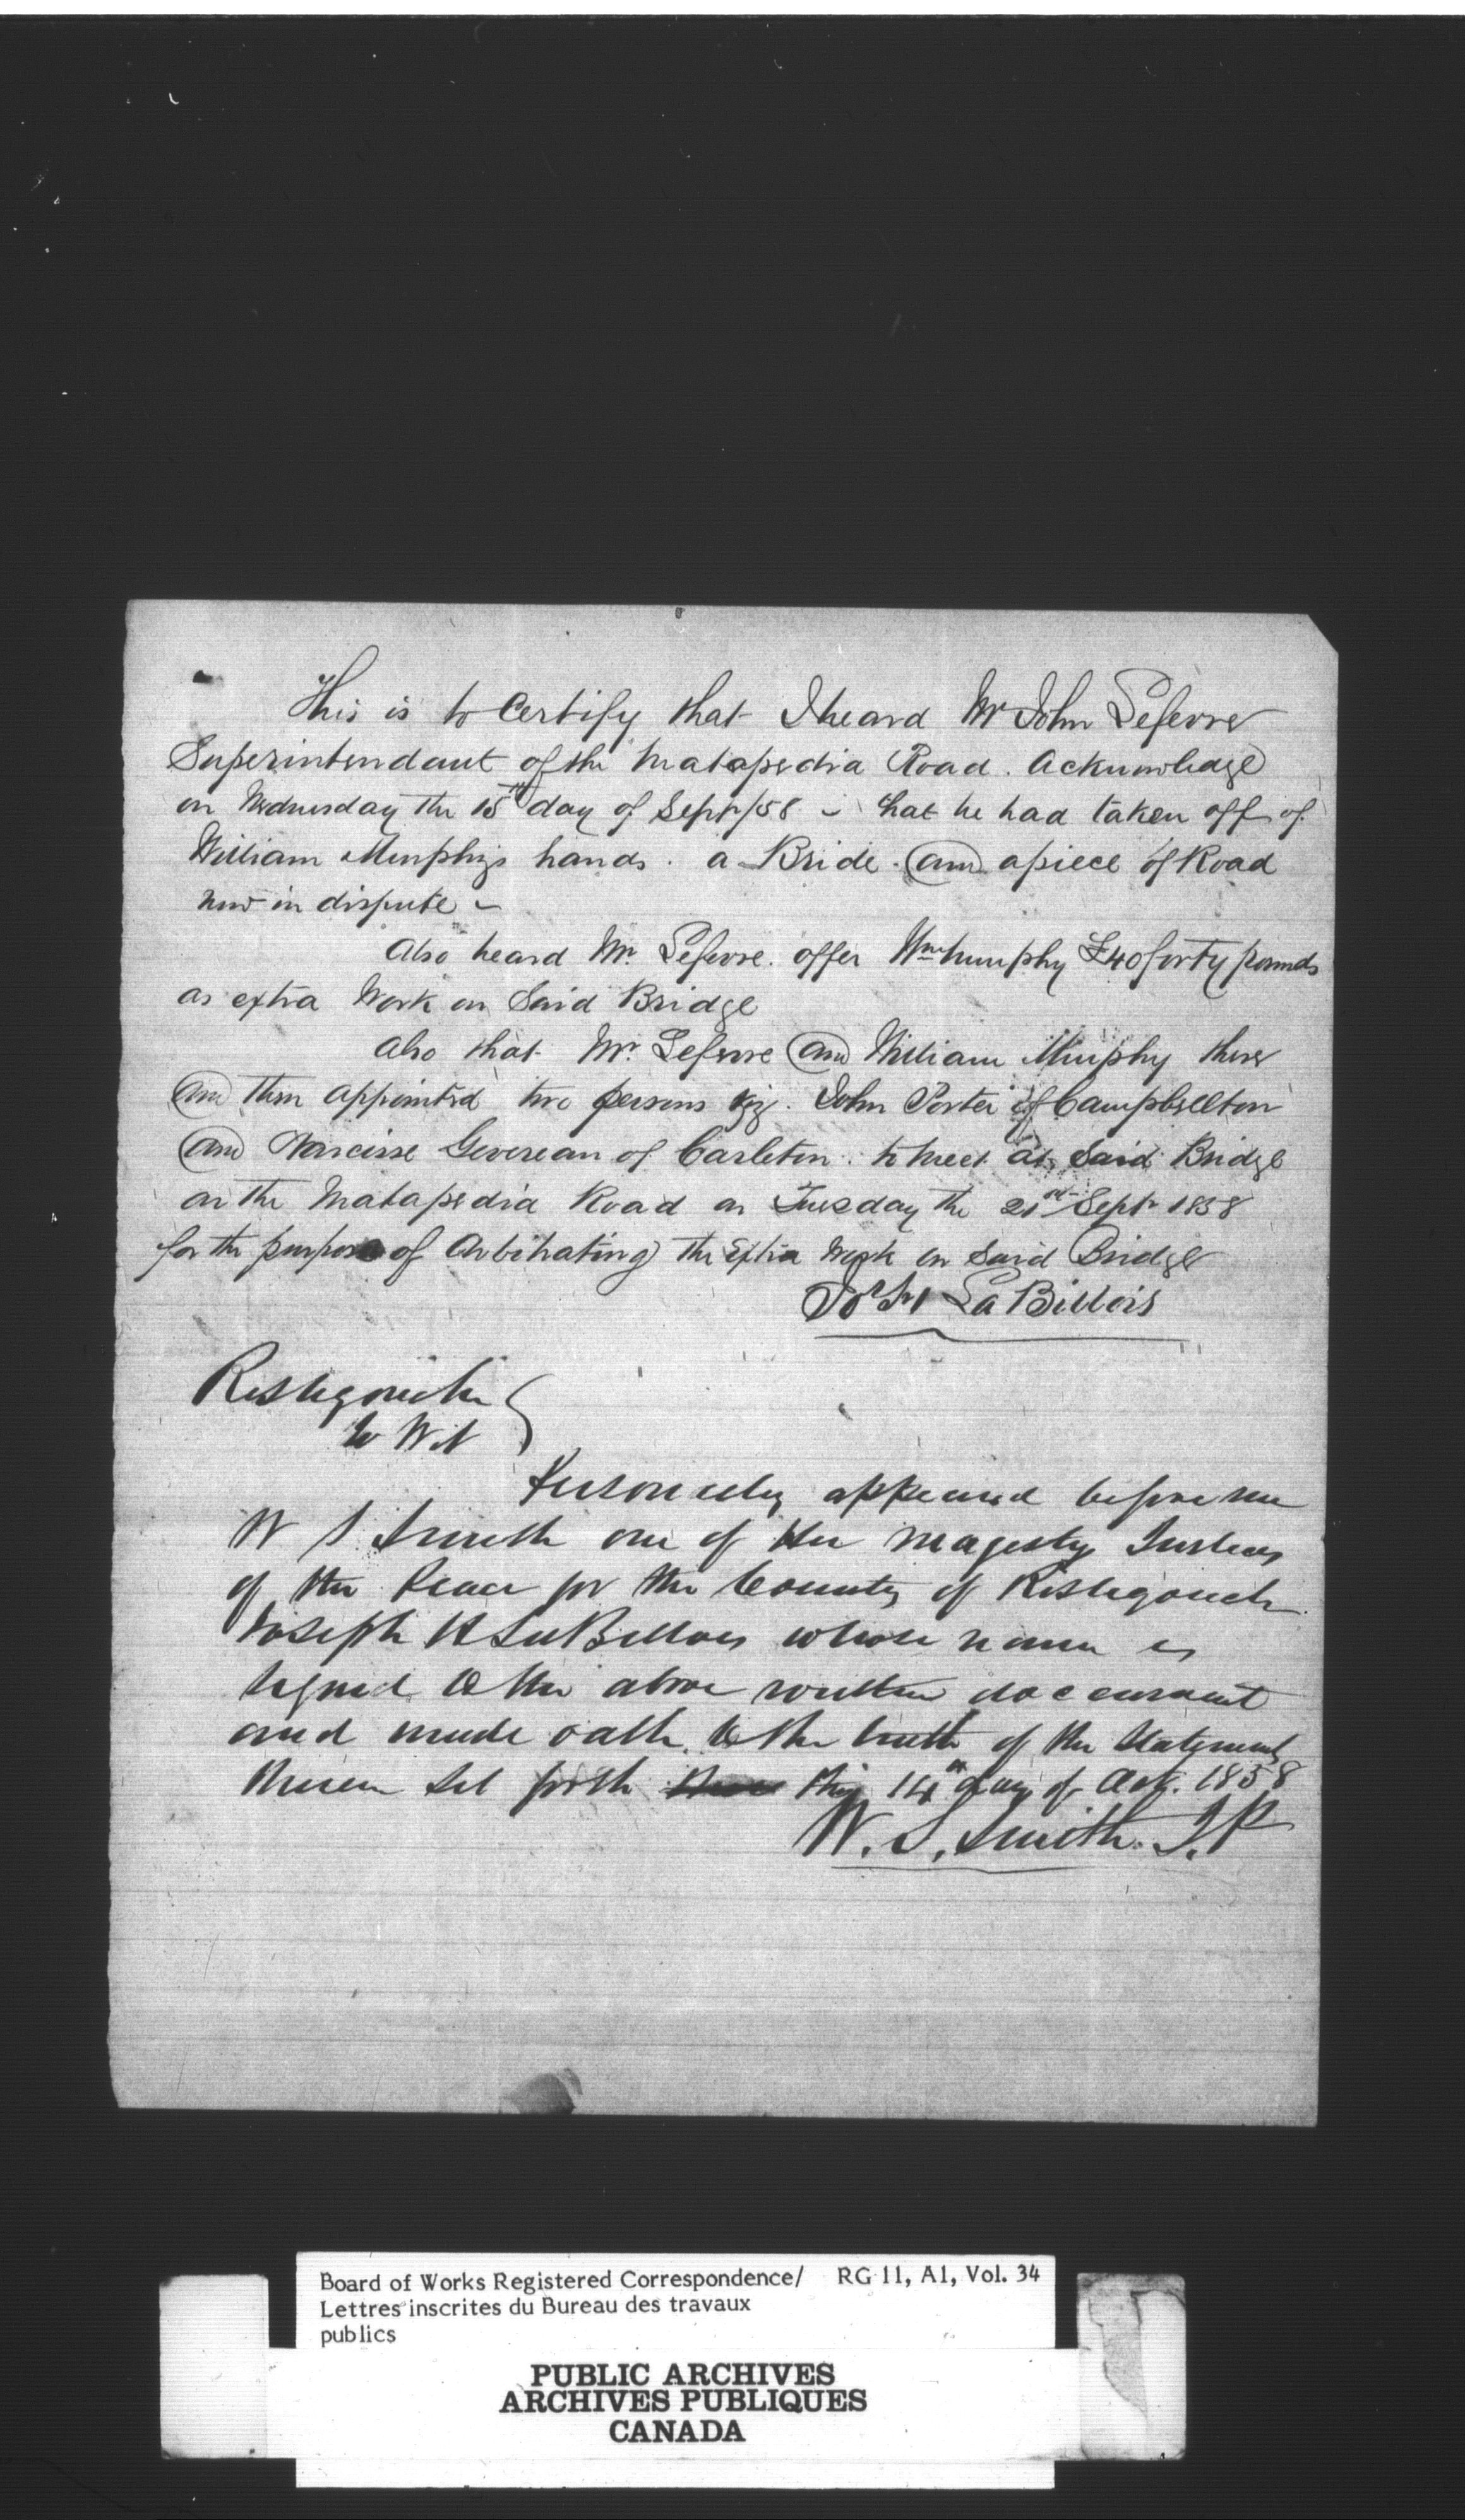 This is to Certify that I heard Mr John Lefevre
Superintendant of the Matapedia Road. Acknowledge
on Wednesday the 15th day of Sept/58 - that he had taken off of
William Murphy's hands. a Bride. and a piece of Road
now in dispute -
Also heard Mr. Lefevre. offer Wm Murphy £40 forty pounds
as extra Work on Said Bridge
Also that Mr. Lefevre and William Murphy there
and then appointed two persons viz. John Porter of Campbellton
and Narcisse Gevereau of Carleton. to meet at Said Bridge
on the Matapedia Road on Tuesday the 21st Sept 1858
for the purpose of Arbitrating the Extra Work on Said Bridge
Jos H La Billois
Restigouche
to Wit
Personally appeared before me
W S Smith one of Her Magesty Justices
of the Peace for the County of Restigouch
Joseph H LaBillois whose name is
signed to the above written doccument
and made oath to the truth of the Statement
therein set forth this 14th day of Oct. 1858
W. S. Smith. J.P
Board of Works Registered Correspondence/ RG 11, A1, Vol. 34
Lettres inscrites du Bureau des travaux
publics
PUBLIC ARCHIVES
ARCHIVES PUBLIQUES
CANADA